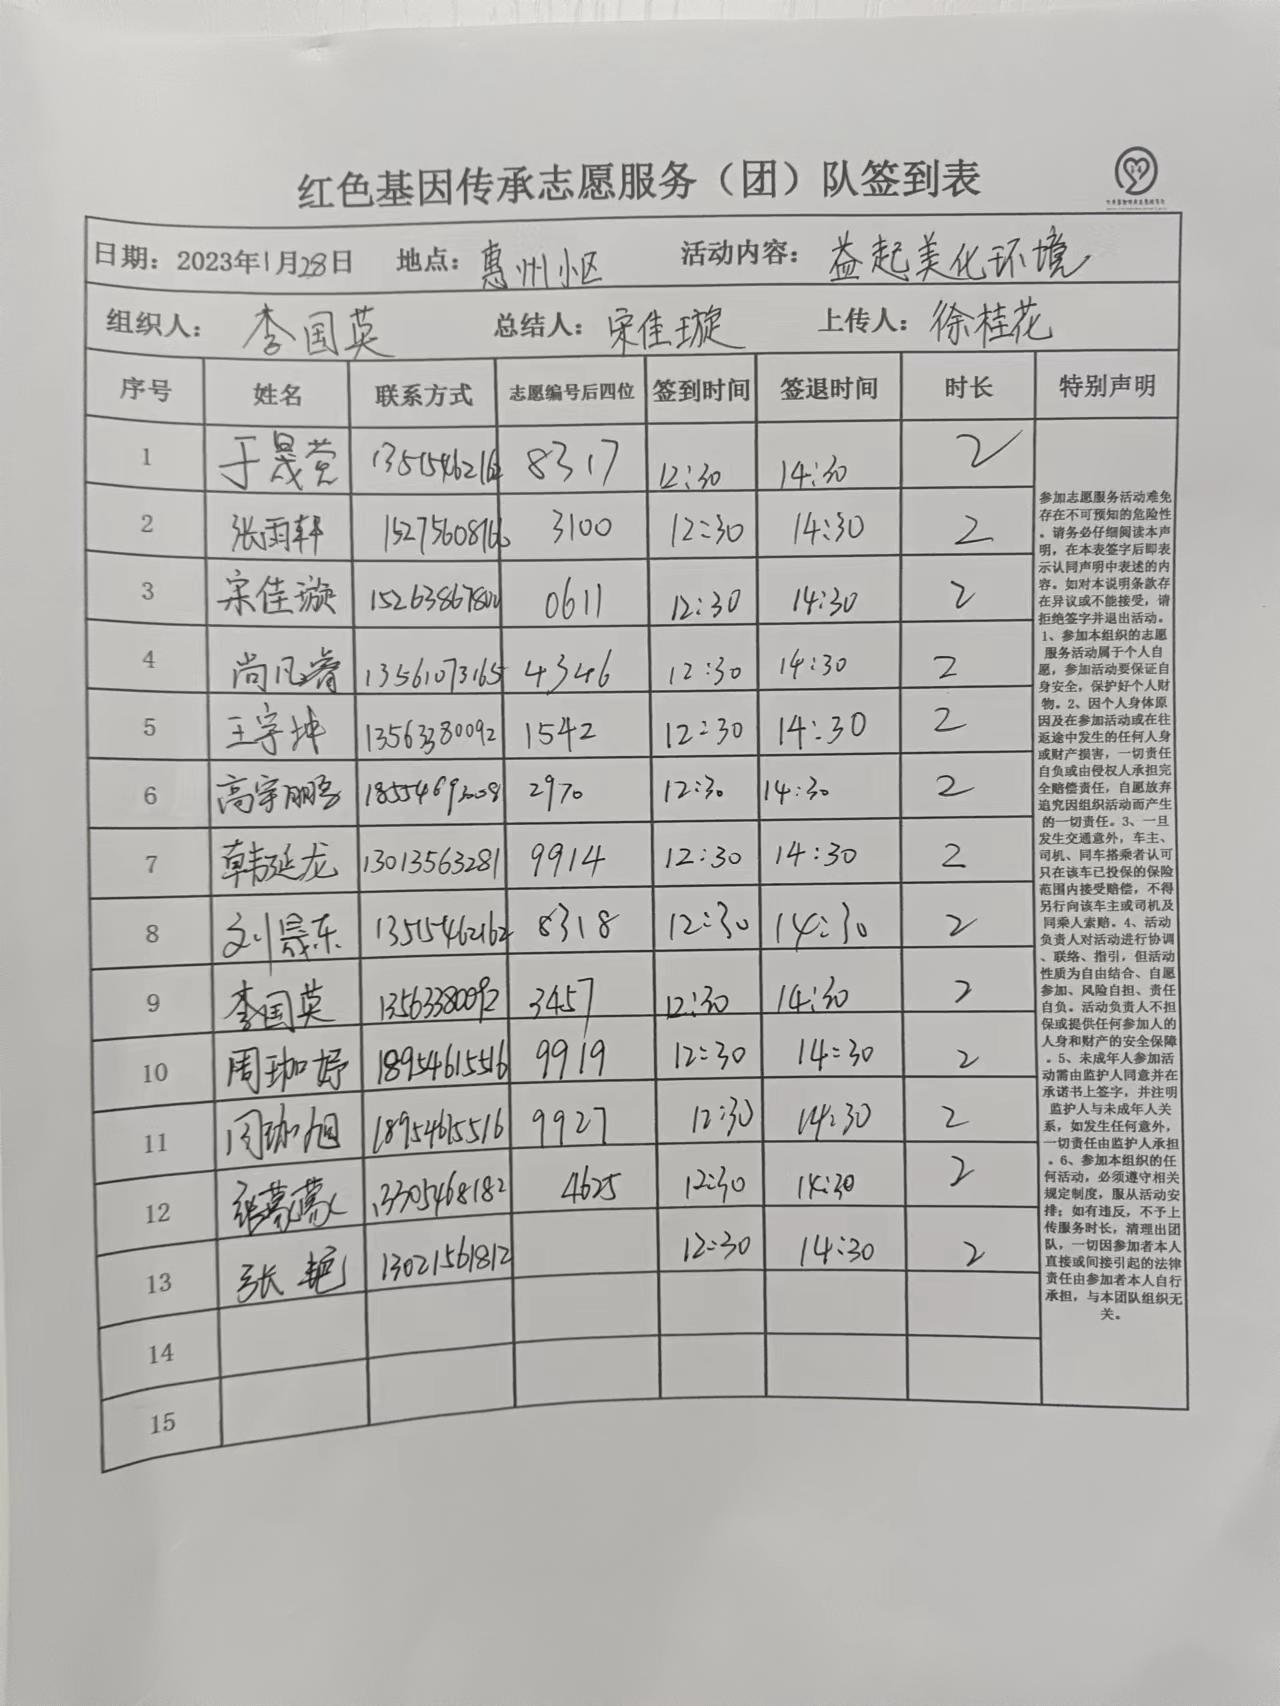 红色基因传承志愿服务（团）队签到表
日期：2023年1月28日 地点：惠州小区 活动内容：益起美化环境
组织人：李国英 总结人：宋佳璇 上传人：徐桂花
序号 姓名 联系方式 志愿编号后四位 签到时间 签退时间 时长 特别声明
1 于晟尧 13515462162 8317 12:30 14:30 2
2 张雨轩 3100 12:30 14:30 2
3 宋佳璇 0611 12:30 14:30 2
4 尚凡睿 13561073165 4346 12:30 14:30 2
5 王宇坤 13563380092 1542 12:30 14:30 2
6 高宇鹏 2970 12:30 14:30 2
7 韩延龙 13013563281 9914 12:30 14:30 2
8 刘晟东 13515462162 8318 12:30 14:30 2
9 李国英 13563380092 3457 12:30 14:30 2
10 周珈妤 18954615516 9919 12:30 14:30 2
11 周珈旭 18954615516 9927 12:30 14:30 2
12 张蒙蒙 13305468182 4625 12:30 14:30 2
13 张艳 13021561812 12:30 14:30 2
14
15
参加志愿服务活动难免
存在不可预知的危险性
。请务必仔细阅读本声
明，在本表签字后即表
示认同声明中表述的内
容。如对本说明条款存
在异议或不能接受，请
拒绝签字并退出活动。
1、参加本组织的志愿
服务活动属于个人自
愿，参加活动要保证自
身安全，保护好个人财
物。2、因个人身体原
因及在参加活动或在往
返途中发生的任何人身
或财产损害，一切责任
自负或由侵权人承担完
全赔偿责任，自愿放弃
追究因组织活动而产生
的一切责任。3、一旦
发生交通意外，车主、
司机、同车搭乘者认可
只在该车已投保的保险
范围内接受赔偿，不得
另行向该车主或司机及
同乘人索赔。4、活动
负责人对活动进行协调
、联络、指引，但活动
性质为自由结合、自愿
参加、风险自担、责任
自负。活动负责人不担
保或提供任何参加人的
人身和财产的安全保障
。5、未成年人参加活
动需由监护人同意并在
承诺书上签字，并注明
监护人与未成年人关
系，如发生任何意外，
一切责任由监护人承担
。6、参加本组织的任
何活动，必须遵守相关
规定制度，服从活动安
排；如有违反，不予上
传服务时长，清理出团
队，一切因参加者本人
直接或间接引起的法律
责任由参加者本人自行
承担，与本团队组织无
关。